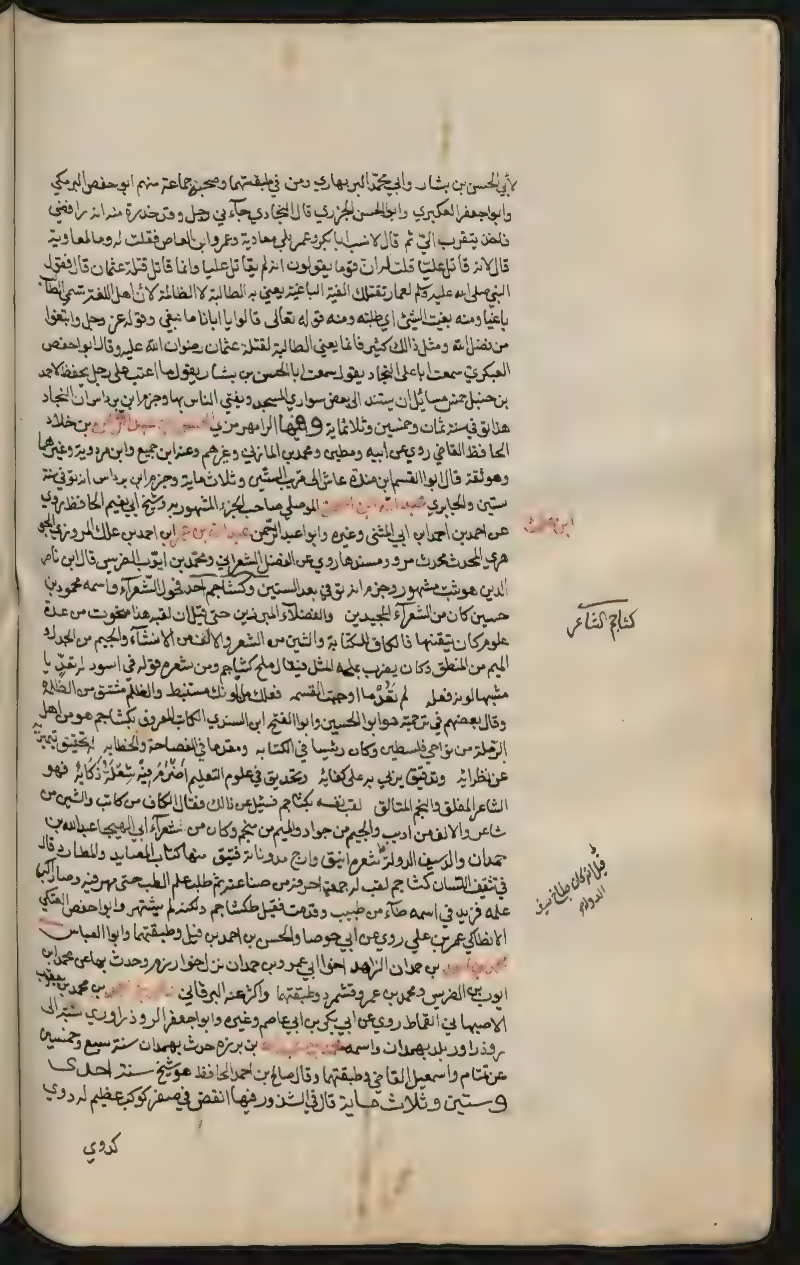 لأبي الحسن بن بشار وابي محمد البربهاري ومن في طبقتهما وصحبه جماعة منهم ابو حفص البرمكي
وابو جعفر العكبري وابو الحسن الجزري قال النجاد جاءني رجل وقد حذرت منه انه رافضي
فاخذ يتقرب الي ثم قال لا نسب ابا بكر وعمر بل معاوية وعمرو ابن العاص فقلت له وما لمعاوية
قال لانه قاتل عليا قلت له ان قوما يقولون انه لم يقاتل عليا وانما قاتل قتلة عثمان قال فقول
النبي صلى الله عليه وسلم لعمار تقتلك الفئة الباغية يعني به الطالبة لا الظالمة لان اهل اللغة تسمي الطالب
باغيا ومنه بغيت الشئ اي طلبته ومنه قوله تعالى قالوا يا ابانا ما نبغي وقوله عز وجل وابتغوا
من فضل الله ومثل ذالك كثير فانما يعني الطالبة لقتلة عثمان رضوان الله عليه وقال ابو حفص
العبكري سمعت ابا علي النجاد يقول سمعت ابا الحسن بن بشار يقول ما اعتب على رجل يحفظ لاحمد
بن حنبل خمس مسائل ان يستند الى بعض سواري المسجد ويفتي الناس بها وجزم ابن برداس ان النجاد
هذا توفي سنة ثمان وخمسين وثلاثماية وفيها الرامهرمزي بن خلاد
الحافظ القاضي روى عن ابيه ومطين ومحمد بن المازني وغيرهم وعنه ابن جميع وابن مردوية وغيرهما
وهو ثقة قال ابو القسم ابن مندة عاش الى قريب الستين وثلاث ماية وجزم ابن برداس انه توفي سنة
ستين والجابري عبد الله ابن الموصلي صاحب الجزء المشهور به وشيخ ابي نعيم الحافظ روى
عن احمد بن احمد ابن ابي المثنى وغيره وابو عبد الرحمن ابن احمد بن علك المروزي الجو
هري المحدث محدث مرو ومسندها روى عن الفضل الشعراني ومحمد بن ايوب الضريس قال ابن ناصر
الدين هو ثبت مشهور وجزم انه توفي بعد الستين وكشاجم احد فحول الشعراء واسمه محمود بن
حسين كان من الشعراء المجيدين والفضلاء المبرزين حتى قيل ان لقبه هذا منحوت من عدة
علوم كان يتقنها فالكاف للكتابة والشين من الشعر والالف من الانشاء والجيم من الجدل و
الميم من المنطق وكان يضرب بملحه المثل فيقال ملح كشاجم ومن شعره قوله في اسود له تعدي يا
مشبها لونه فعله لم تعد ما اوجبت القسمه فعلك من لونك مستنبط والظلم مشتق من الظلمه
وقال بعضهم في ترجمته هو ابو الحسين وابو الفتح ابن السندي الكاتب المعروف بكشاجم هو من اهل
الرملة من نواحي فلسطين وكان رئيسا في الكتابه ومقدما في الفصاحة والخطابه له تحقيق يتميز به
عن نظرائه وتدقيق يربي به على كفائه وتحديق في علوم التعليم اضرم في شعلة ذكائه فهو
الشاعر المفلق والنجم المتالق لقب نفسه بكشاجم فسئل عن ذالك فقال الكاف من كاتب والشين من
شاعر والالف من اديب والجيم من جواد والميم من منجم وكان من شعراء ابي الهيجا عبدالله بن
حمدان والد سيف الدولة شعره انيق وارج مدوناته فتيق منها كتاب المصايد والمطارد وقال
في تثقيف اللسان كشاجم لقب له جمعت احرفه من صناعته ثم طلب علم الطب حتى مهر فيه وصار اكبر
علمه فزيد في اسمه طاء من طبيب وقدمت فقيل طكشاجم ولكنه لم يشتهر وابو حفص العتكي
الانطاكي عمر بن علي روى عن ابن جوصا والحسن بن احمد بن فيل وطبقتهما وابو العباس
بن حمدان الزاهد اخو ابي عمرو بن حمدان نزل خوارزم وحدث بها عن محمد ابن
ايوب بن الضريس ومحمد بن عمرو قشمرد وطبقتهما واكثر عنه البرقاني بن محمد بن يعقوب
الاصبهاني القماط روى عن ابي بكر بن ابي عاصم وغيره وابو جعفر الروذراوري نسبة الى
روذراور بلد بهمدان واسمه بن برزه حدث بهمدان سنة سبع وخمسين
عن تمتام واسمعيل القاضي وطبقتهما وقال صالح بن احمد الحافظ هو شيخ سنة احدى
وستين وثلاث ماية قال في الشذور فيها انقض في صفر كوكب عظيم له دوي
كدوي
كشاجم الشاعر
قيل انه كان طباخ سيف
الدولة